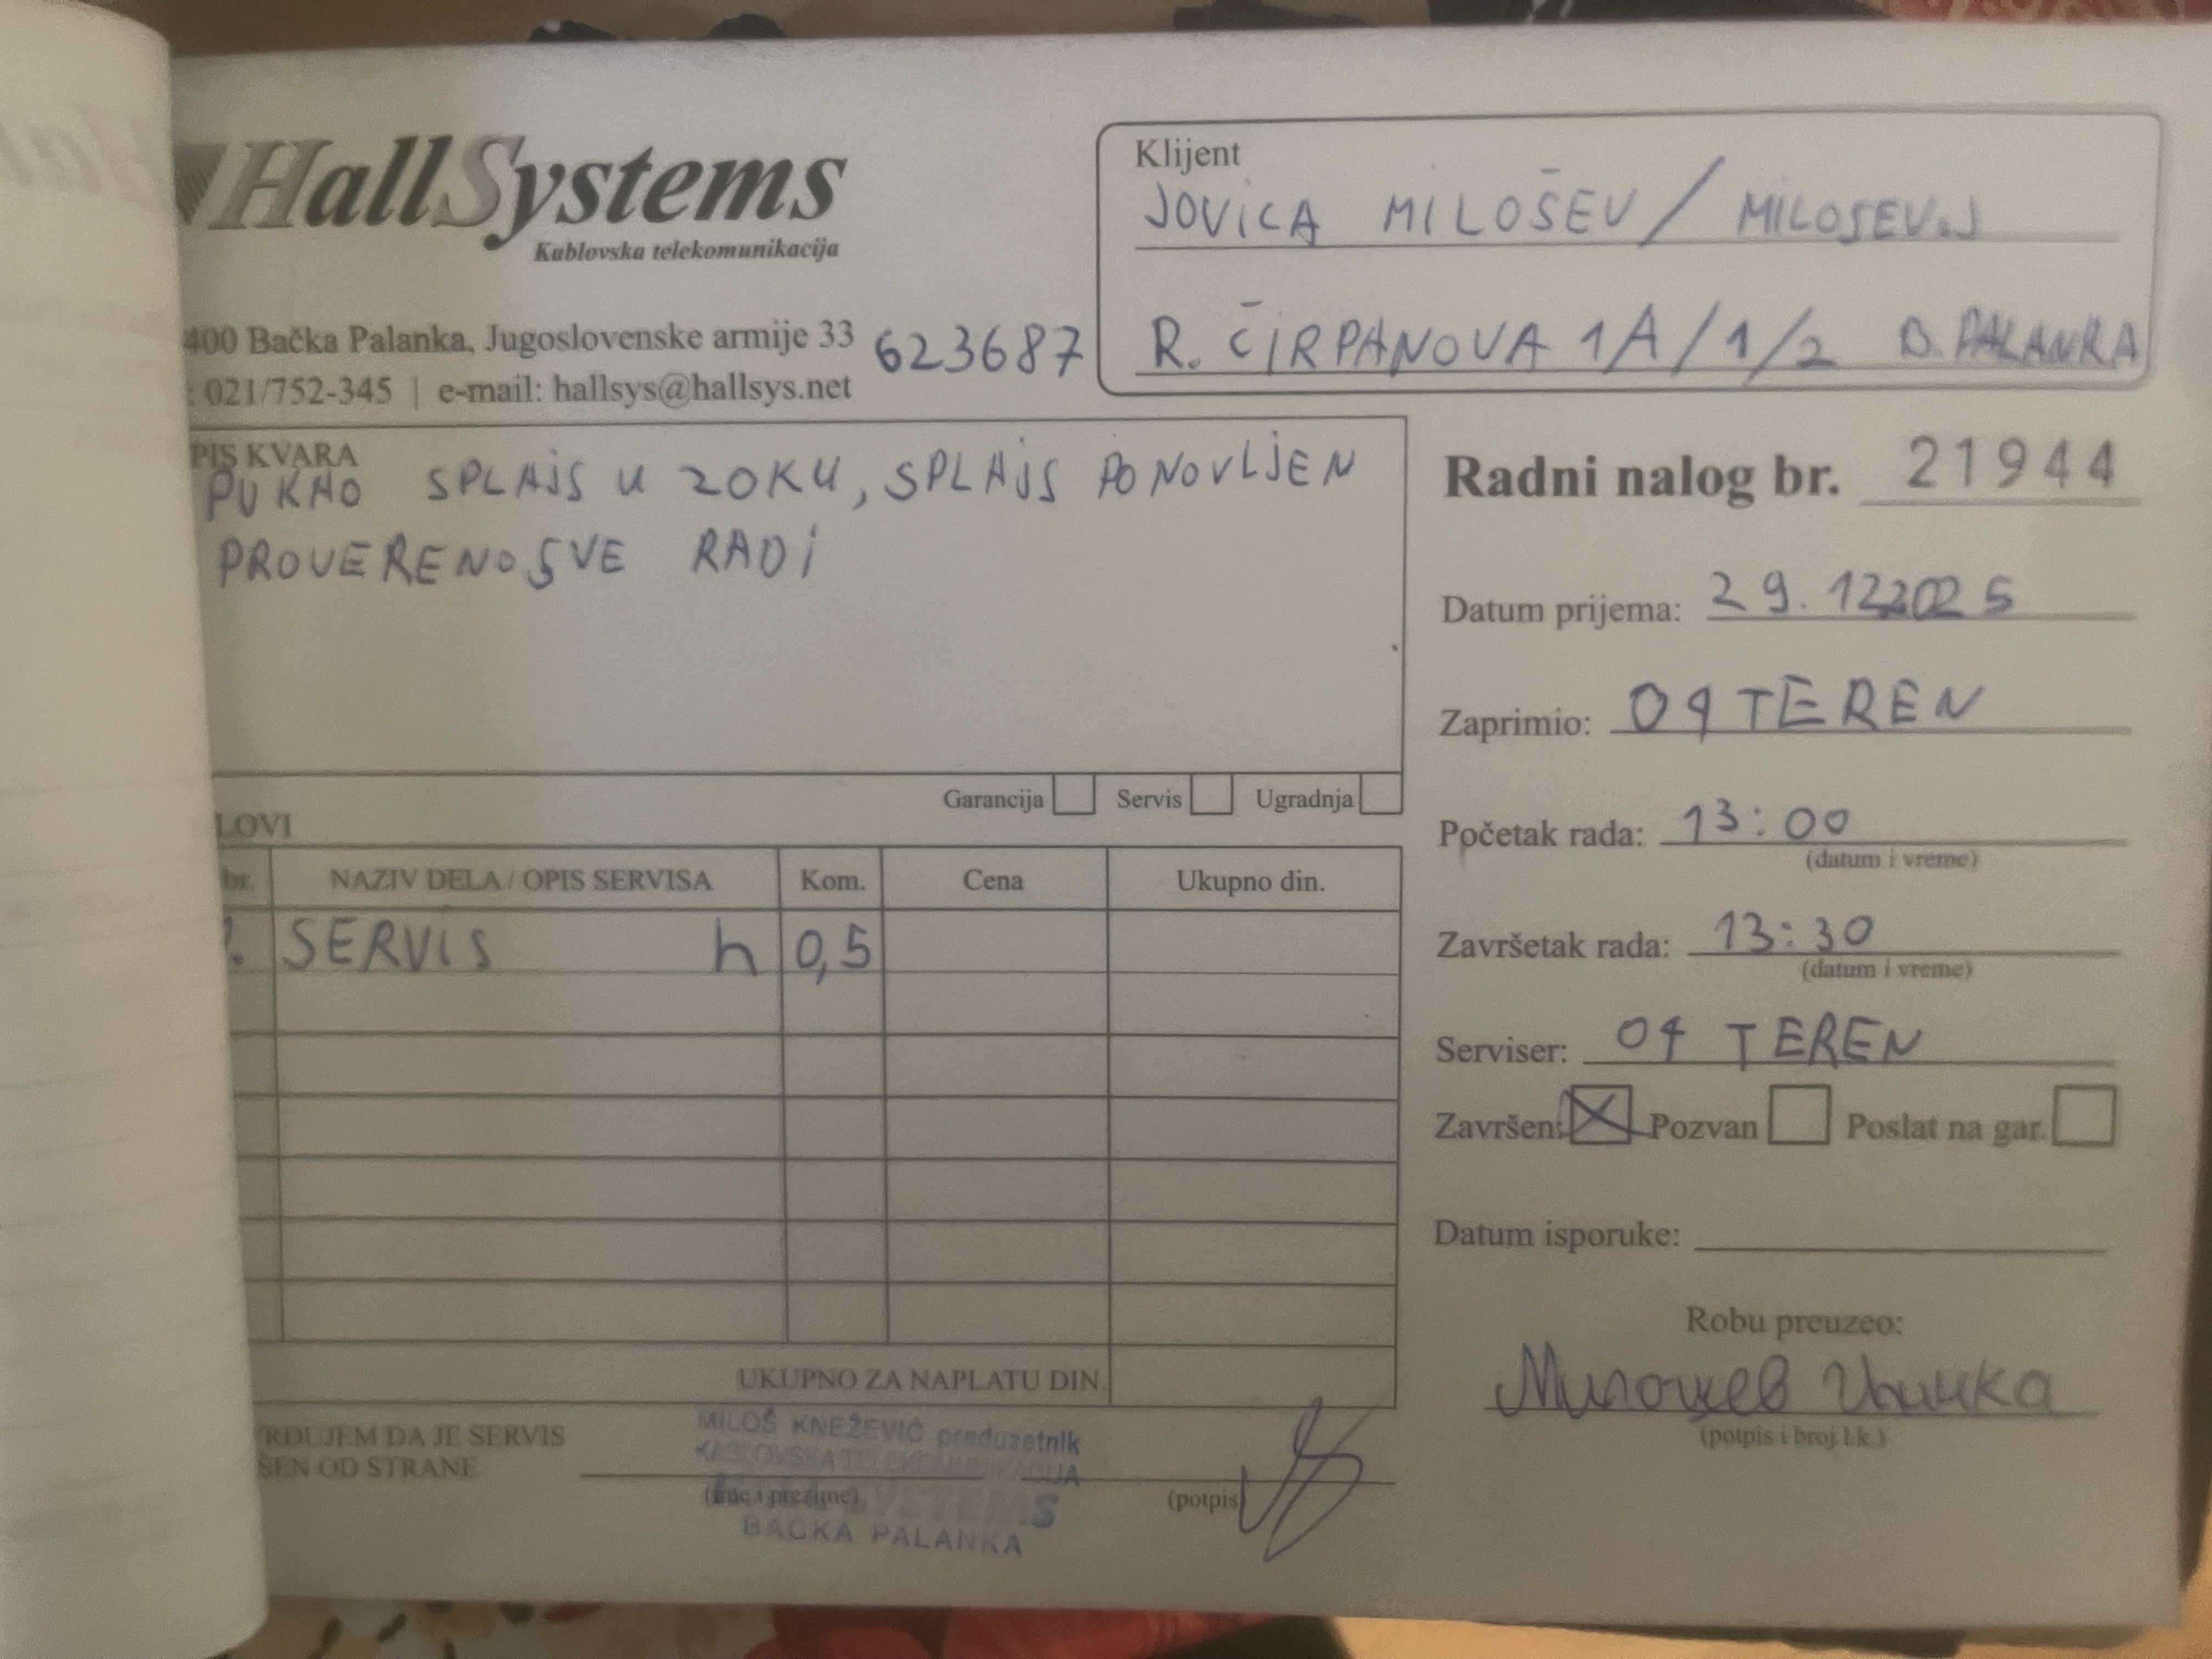 HallSystems
Kablovska telekomunikacija
400 Bačka Palanka, Jugoslovenske armije 33
: 021/752-345 | e-mail: hallsys@hallsys.net
623687
Klijent
JOVICA MILOŠEV / MILOSEV.J
R. ČIRPANOVA 1A/1/2 B. PALANKA
PIS KVARA
PUKAO SPLAJS U ZOKU, SPLAJS PONOVLJEN
PROVERENO SVE RADI
Garancija Servis Ugradnja
LOVI
br. NAZIV DELA / OPIS SERVISA Kom. Cena Ukupno din.
. SERVIS h 0,5
UKUPNO ZA NAPLATU DIN.
RDUJEM DA JE SERVIS
ŠEN OD STRANE
MILOŠ KNEŽEVIĆ preduzetnik
KABLOVSKA TELEKOMUNIKACIJA
(ime i prezime) SYSTEMS
BAČKA PALANKA
(potpis)
Radni nalog br. 21944
Datum prijema: 29.12.2025
Zaprimio: 04 TEREN
Početak rada: 13:00
(datum i vreme)
Završetak rada: 13:30
(datum i vreme)
Serviser: 04 TEREN
Završen: Pozvan Poslat na gar.
Datum isporuke:
Robu preuzeo:
Милошев
(potpis i broj l.k.)